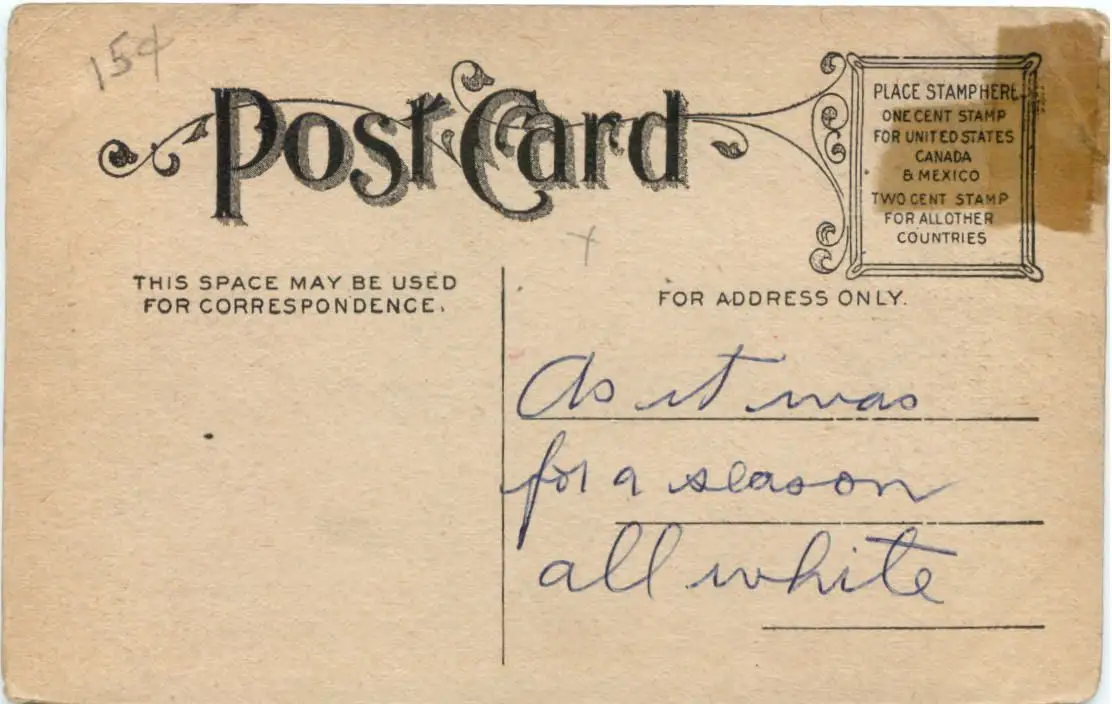 15¢
Post Card
PLACE STAMP HERE
ONE CENT STAMP
FOR UNITED STATES
CANADA
& MEXICO
TWO CENT STAMP
FOR ALL OTHER
COUNTRIES
THIS SPACE MAY BE USED
FOR CORRESPONDENCE.
FOR ADDRESS ONLY.
As it was
for a season
all white